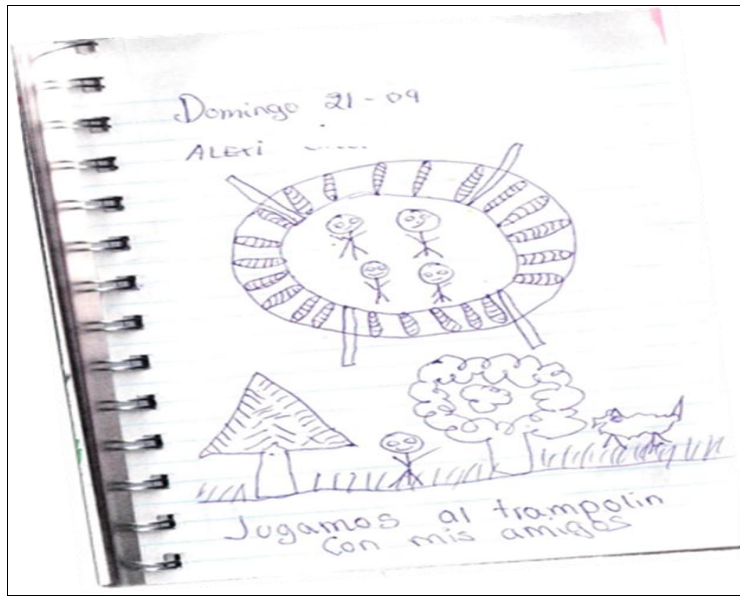 Domingo 21-09
ALEXI
Jugamos al trampolin
Con mis amigos